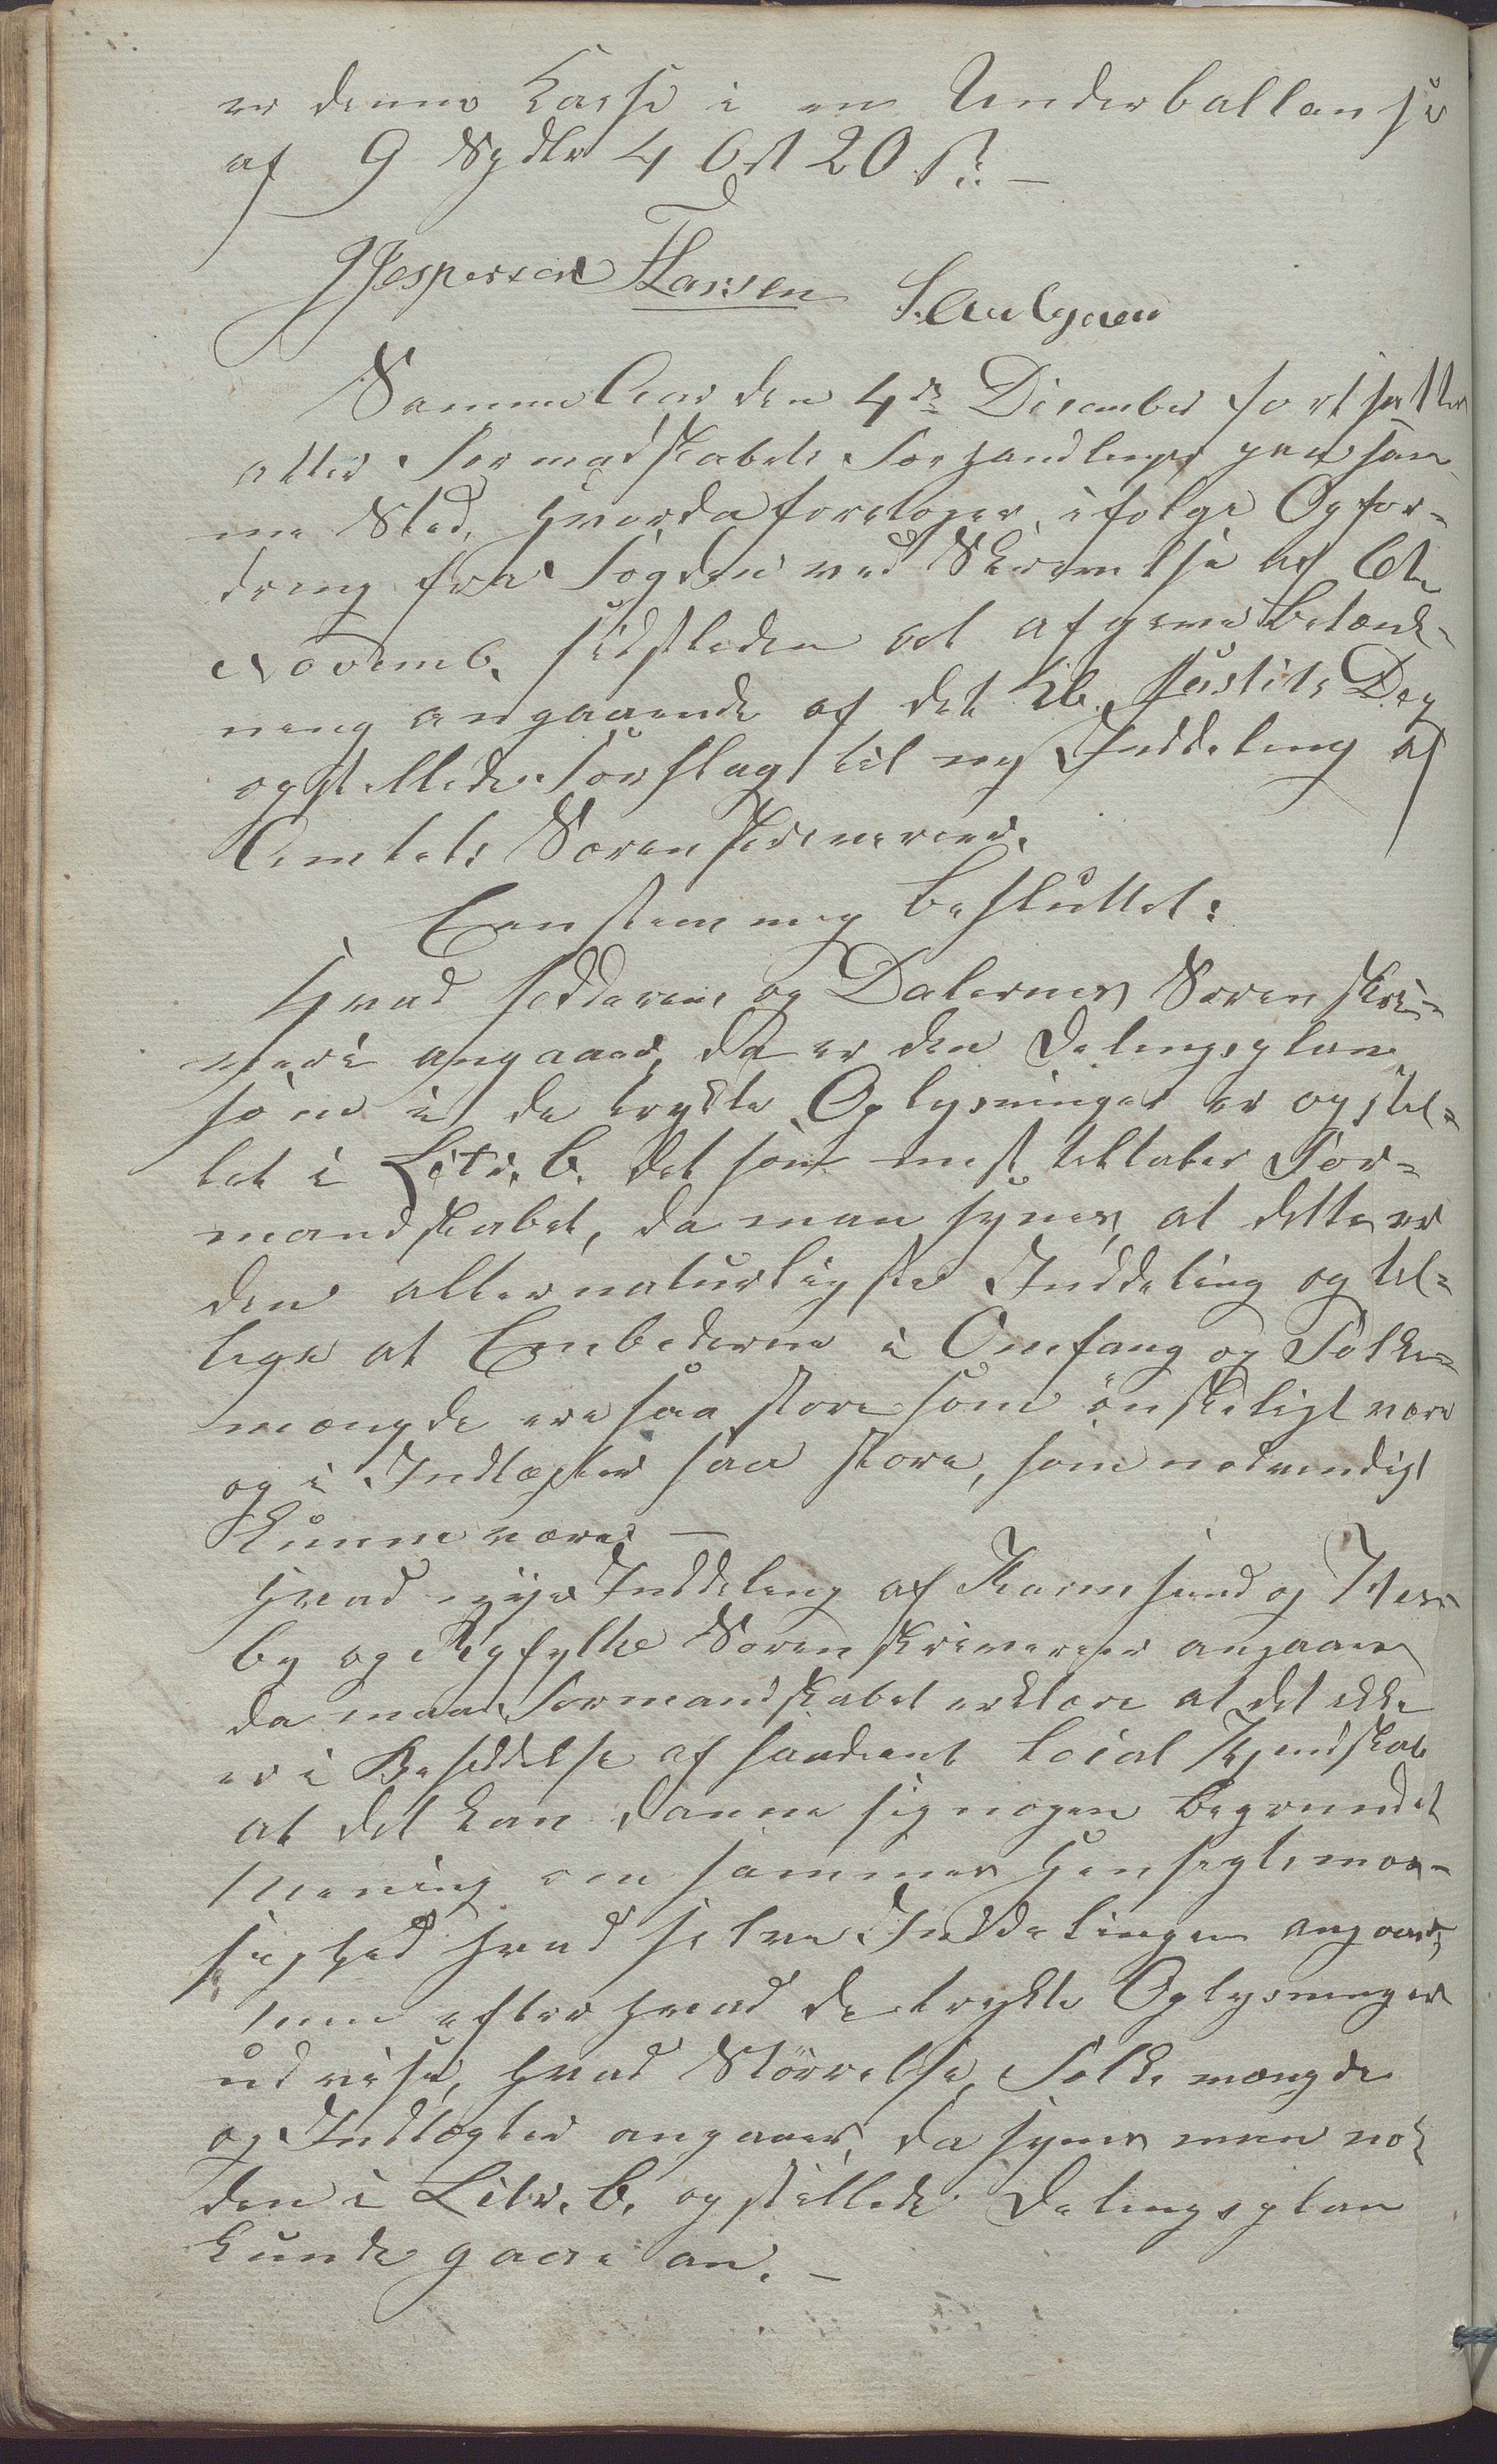 er denne Kasse i en Underballanse
af 9 Spdlr 4 Ort 20 s. –
Jespersen TLarsen
Samme Aar den 4de December fortsatter
atter Formadskabets Forhandlinger paa sam
me Sted, hvorda foretoges, ifølge Opfor-
dring fra Fogden ved Skrivelse af 6te
Novemb. sidstleden at afgive Betænk-
ning angaaende af det Kb. Justits Dep
opstillede Forslag til ny Inddeling af
Amtets Sorenskriverier.
Eenstemmig besluttet:
Hvad Jedderens og Dalernes Sorenskri-
verie angaaer, da er den Delingsplan
som i de trykte Oplysninger er opstil-
let i Litr. b. det som mest tiltaler For-
mandskabet, da man synes, at dette er
den allernaturligste Inddeling og til-
lige at Embederne i Omfang og Folke-
mængde ere saa store som önskeligt være
og i Indtægter saa store, som nødvendigt
kunne være. –
Hvad nye Inddeling af Karmsund og Hes-
by og Ryfylke Sorenskriverier angaaer
da maa Formandskabet erklære at det ikke
er i Besiddelse af saadant local Kjendskab
at det kan danne sig nogen begrundet
Mening om sammes Hensigtsmæs-
sighed hvad selve Inddelingen angaar,
men efter hvad de trykte Oplysninger
udvise, hvad Störrelse, Folkemængde
og Indtægter angaaer, da synes man nok
den i Litr. b. opstillede Delingsplan
kunde gaae an. –